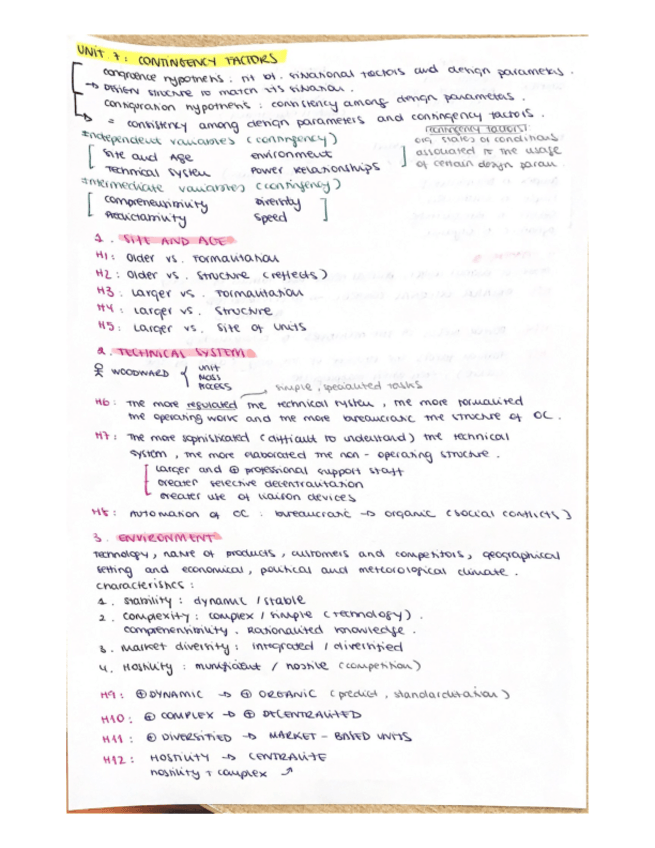 UNIT 7: CONTINGENCY FACTORS
congruence hypothesis: fit bt. situational factors and design parameters.
→ Design structure to match its situation.
configuration hypothesis: consistency among design parameters.
= consistency among design parameters and contingency factors.
Independent variables (contingency)
contingency factors:
org states or conditions
associated to the usage
of certain design param.
Size and Age environment
Technical System Power Relationships
Intermediate variables (contingency)
comprehensibility Diversity
Predictability Speed
1. SIZE AND AGE
H1: Older vs. Formalization
H2: Older vs. Structure (reflects)
H3: Larger vs. Formalization
H4: Larger vs. Structure
H5: Larger vs. Size of units
2. TECHNICAL SYSTEM
WOODWARD { unit
mass
process
simple, specialized tasks
H6: The more regulated the technical system, the more formalized
the operating work and the more bureaucratic the structure of OC.
H7: The more sophisticated (difficult to understand) the technical
system, the more elaborated the non-operating structure.
Larger and ⊕ professional support staff
Greater selective decentralization
Greater use of liaison devices
H8: Automation of OC: bureaucratic → organic (social conflicts)
3. ENVIRONMENT
Technology, nature of products, customers and competitors, geographical
setting and economical, political and meteorological climate.
characteristics:
1. Stability: dynamic / stable
2. Complexity: complex / simple (technology).
comprehensibility. Rationalized knowledge.
3. Market diversity: integrated / diversified
4. Hostility: munificient / hostile (competition)
H9: ⊕ DYNAMIC → ⊕ ORGANIC (predict, standardization)
H10: ⊕ COMPLEX → ⊕ DECENTRALIZED
H11: ⊕ DIVERSIFIED → MARKET-BASED UNITS
H12: HOSTILITY → CENTRALIZE
hostility + complex ↗